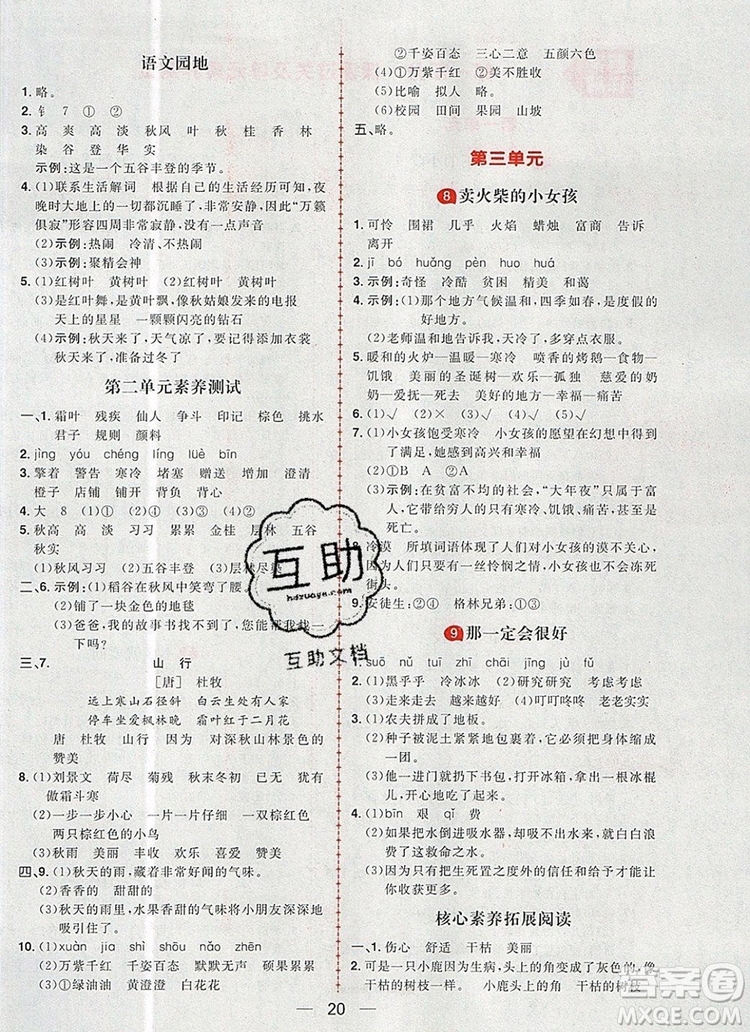 语文园地
1.略。
2.钅 7 ① ②
3.高 爽 高 淡 秋风 叶 秋 桂 香 林
染 谷 登 华 实
示例:这是一个五谷丰登的季节。
4.(1)联系生活解词 根据自己的生活经验,夜
晚时大地上的一切都沉睡了,非常安静,“万籁
俱寂”形容四周非常安静,没有一点声音
(2)示例:热闹 冷清、不热闹
(3)示例:聚精会神
5.(1)红树叶 黄树叶 红树叶 黄树叶
(2)是红叶舞,是黄叶飘,像秋姑娘发来的电报
天上的星星 一颗颗闪亮的钻石
6.示例:秋天来了,天气凉了,加件衣裳。
秋天来了,准备过冬了。
第二单元素养测试
一、1.霜叶 残疾 仙人 争斗 印记 棕色 挑水
君子 规则 颜料
2.jìng yóu chéng líng lüè bīn
3.擎着 警告 寒冷 堵塞 赠送 增加 澄清
橙子 店铺 铺开 背负 背心
4.大 8 (1)② (2)①
5.秋高 高 淡 习习 累累 金桂 层林 五谷
秋实
(1)秋风习习 (2)五谷丰登 层林尽染
二、6.示例:(1)稻谷在秋风中笑弯了腰
(2)铺了一块金色的地毯
(3)爸爸,我的故事书找不到了,您帮我找一
下吗?
三、7. 山 行
[唐] 杜牧
远上寒山石径斜 白云生处有人家
停车坐爱枫林晚 霜叶红于二月花
唐 杜牧 山行 因为 对深秋山林景色的
赞美
8.(1)刘景文 荷尽 菊残 秋末冬初 已无
傲霜斗寒
(2)一步一步小心 一片一片仔细 一双棕红色
两只棕红色的小鸟
(3)秋雨 美丽 丰收 欢乐 喜爱 赞美
四、9.(1)秋天的雨,藏着非常好闻的气味。
(2)香香的 甜甜的
(3)秋天的雨里,水果香甜的气味吸引着小朋友。
10.(1)xuàn jia shì shōu náo shuò
(2)万紫千红 千姿百态 默默无声 硕果累累
(3)①绿油油 黄澄澄 白花花
②千姿百态 三心二意 五颜六色
(4)①万紫千红 ②美不胜收
(5)比喻 拟人
(6)校园 田间 果园 山坡
五、略。
第三单元
8 卖火柴的小女孩
1.可怜 围裙 几乎 火焰 蜡烛 富商 告诉
离开
2.jī bó huǎng pèn huo huá
3.示例:奇怪 冷酷 贫困 精美 和蔼
4.示例:(1)那个地方气候温和,四季如春,是度假的
好地方。
(2)老师温和地告诉我,天冷了,多穿点衣服。
5.暖和的火炉—温暖—寒冷 喷香的烤鹅—食物—
饥饿 美丽的圣诞树—快乐—孤独 慈爱的奶
奶—爱抚—死去
6.(1)√ (2)× (3)√ (4)√
7.(1)小女孩饱受寒冷 小女孩的愿望在幻想中一
一实现,她感到高兴和幸福
(2)①B ②A
(3)示例:在贫富不均的社会,“大年夜”只属于富
人,小女孩在遭受寒冷、饥饿、痛苦之后,悲惨
死亡。
8.冷漠 所填词语体现了人们对小女孩的漠不关心,
没有一丝怜悯之情
9.安徒生:②④ 格林兄弟:①③
9 那一定会很好
1.suō nǔ tuī zhǐ chāi jù fǔ
2.(1)黑乎乎 冷冰冰 (2)研究研究 考虑考虑
(3)走来走去 越来越好 (4)叮叮咚咚
3.(1)农夫拼成了地板。
(2)种子被泥土紧紧地包裹着,它要把身子缩成
一团。
(3)一进家门,我就迫不及待地打开冰箱,拿出一根冰棍儿
吃了起来。
4.(1)bīn 艰 qǐ 费
(2)如果把水倒进吸水器,打开龙头,水就白白浪
费了,我们可能会被渴死。
(3)示例:没有把水喝掉,而是倒进了吸水器里。
(4)献出生死攸关之水的信任和勇气
核心素养拓展阅读
一、1.伤心 舒适 干枯 美丽
2.可是一只小鹿因为生病,头上的角变成了灰色的,像
干枯的树枝一样。 小鹿头上的角 干枯的树枝
互助
hdzuoye.com
互助文档
答案圈
MXQE.COM
20